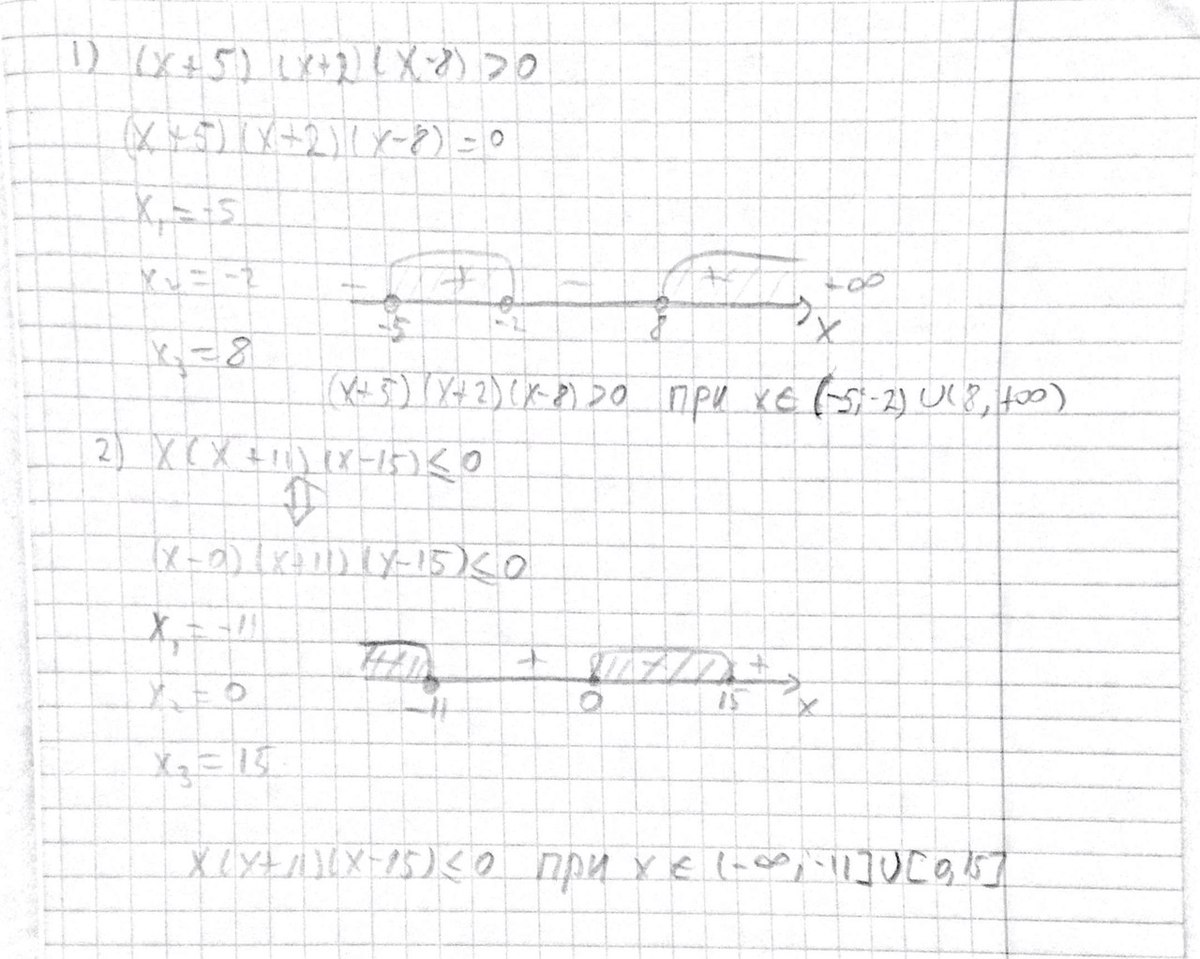 1) (x+5) (x+2) (x-8) >0
(x+5) (x+2) (x-8) =0
x₁ = -5
x₂ = -2
- + - + +∞
-5 -2 8 x
x₃ = 8
(x+5) (x+2) (x-8) >0 при x ∈ (-5;-2) ∪ (8, +∞)
2) x (x+11) (x-15) ≤ 0
⇕
(x-0) (x+11) (x-15) ≤ 0
x₁ = -11
- + - +
-11 0 15 x
x₂ = 0
x₃ = 15
x (x+11) (x-15) ≤ 0 при x ∈ (-∞; -11] ∪ [0,15]